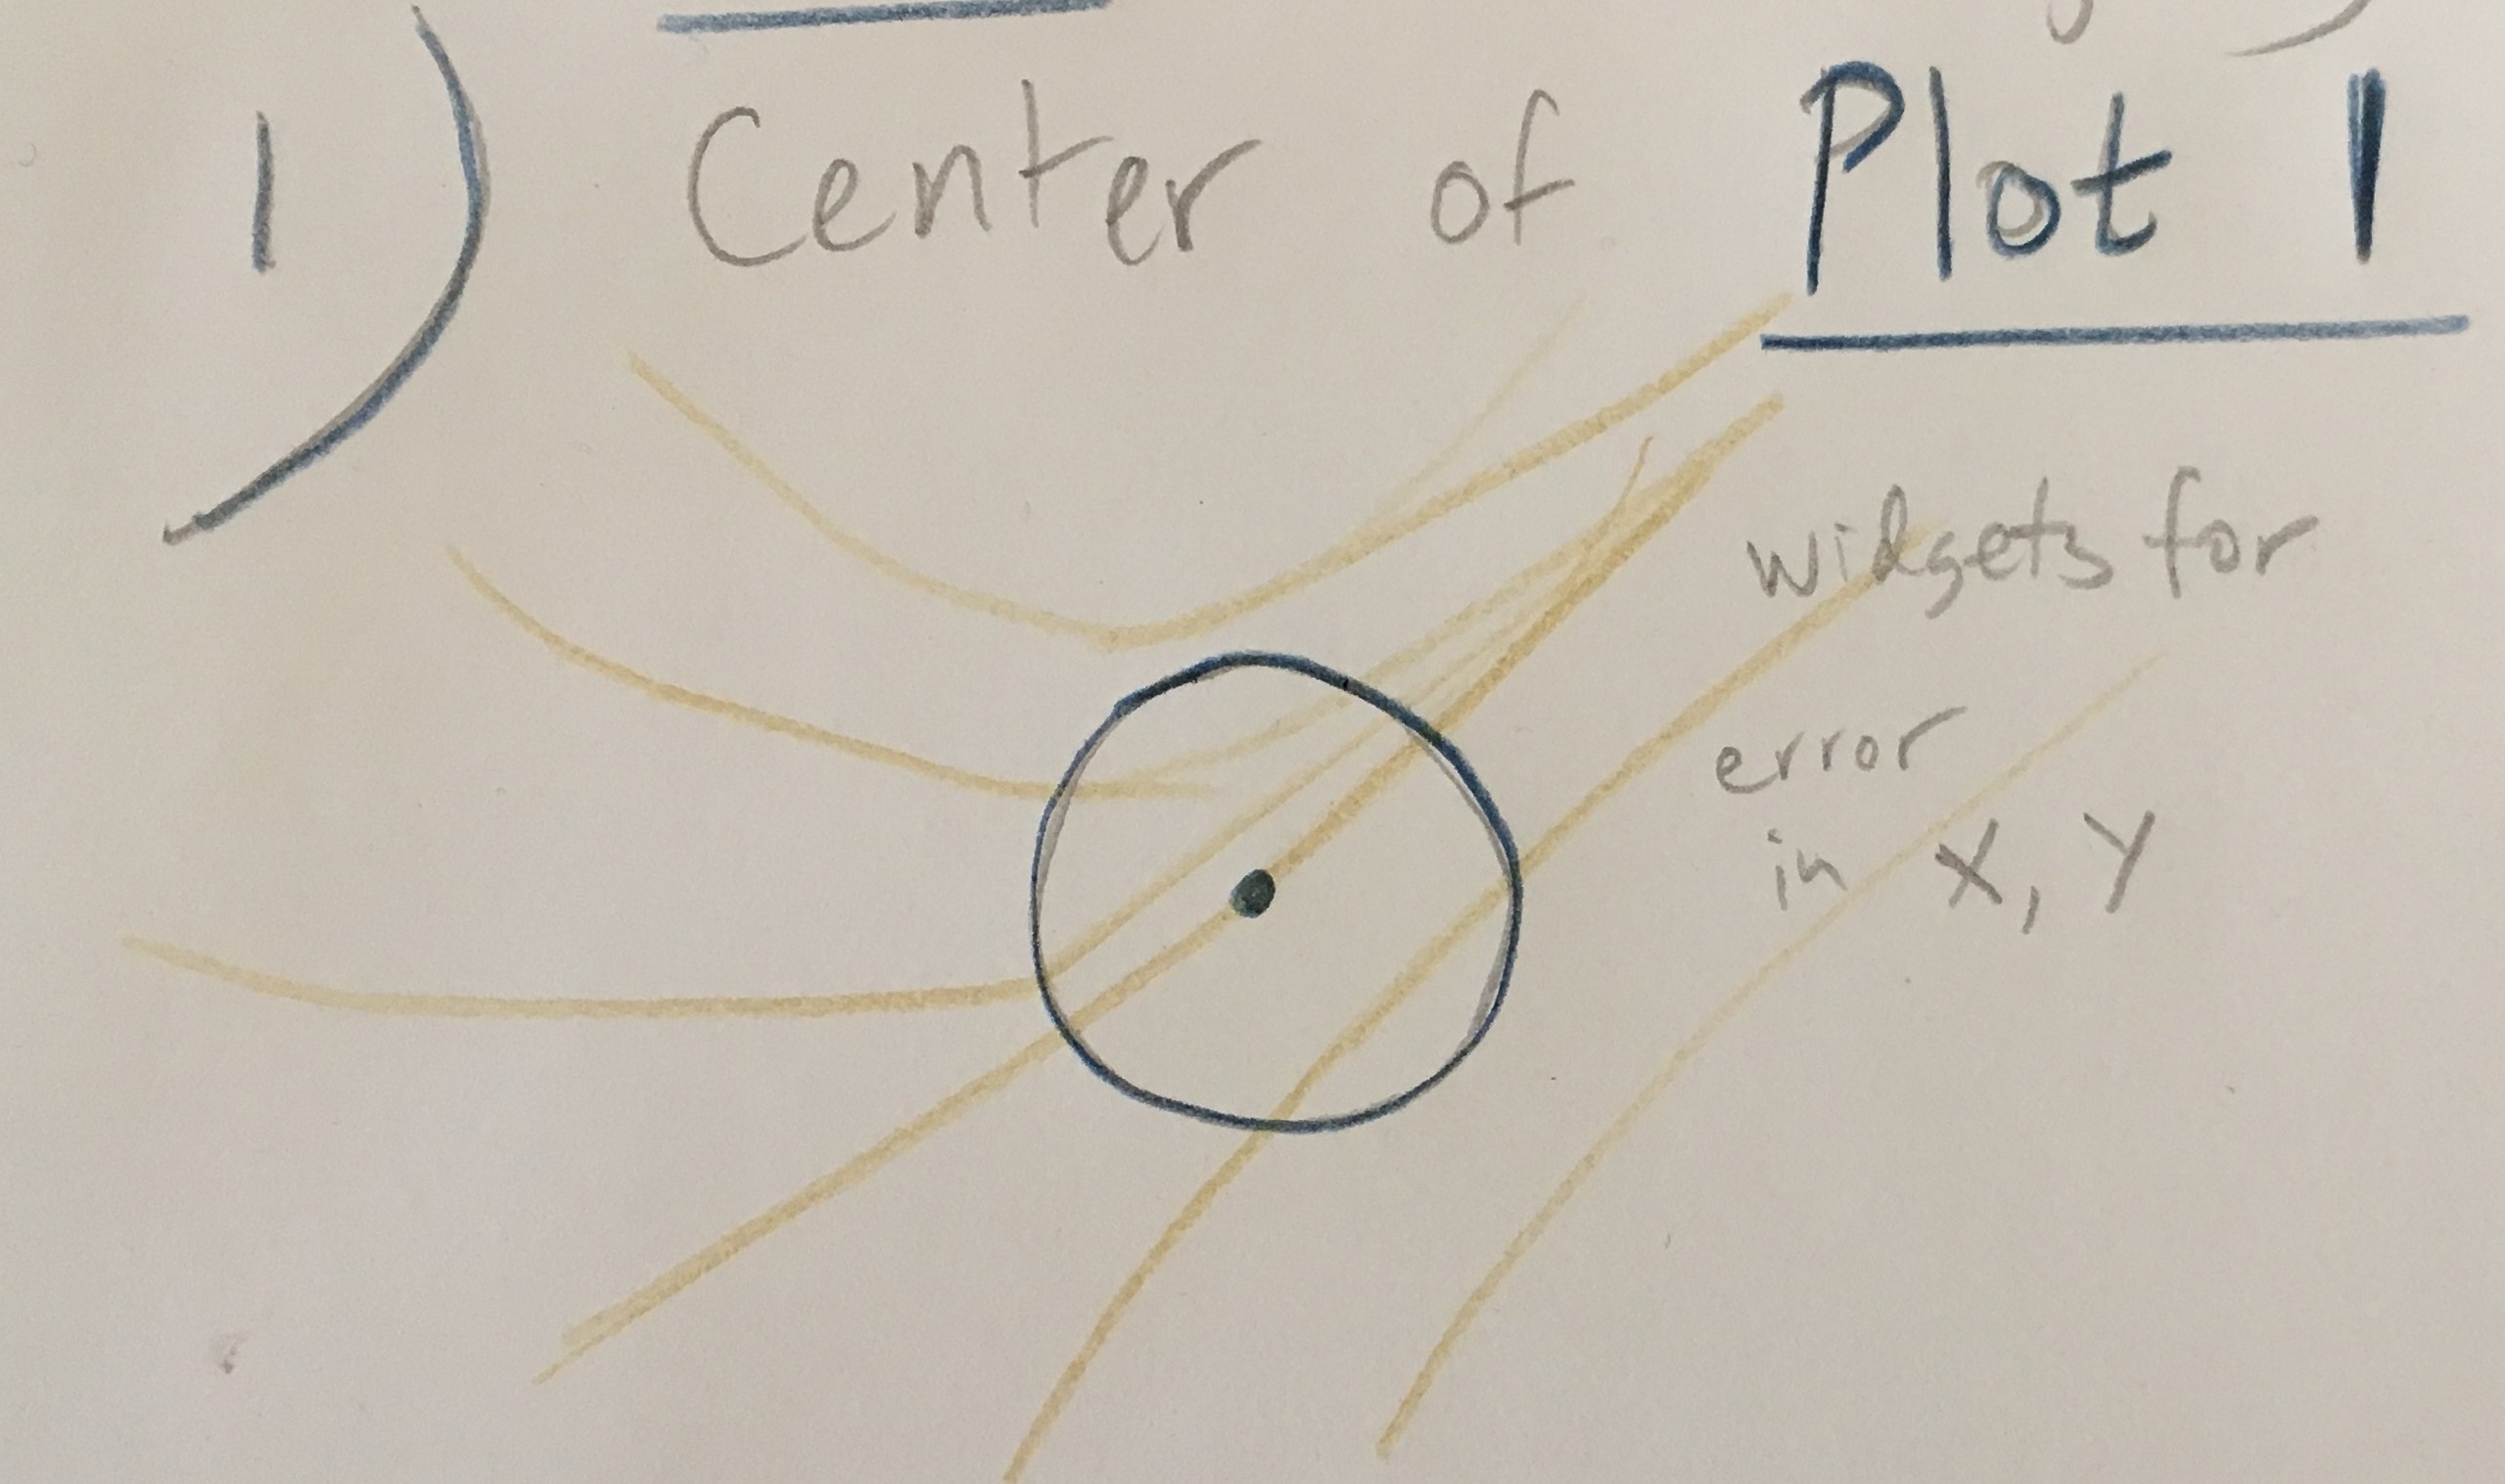 1) Center of Plot 1
widgets for
error
in X, Y